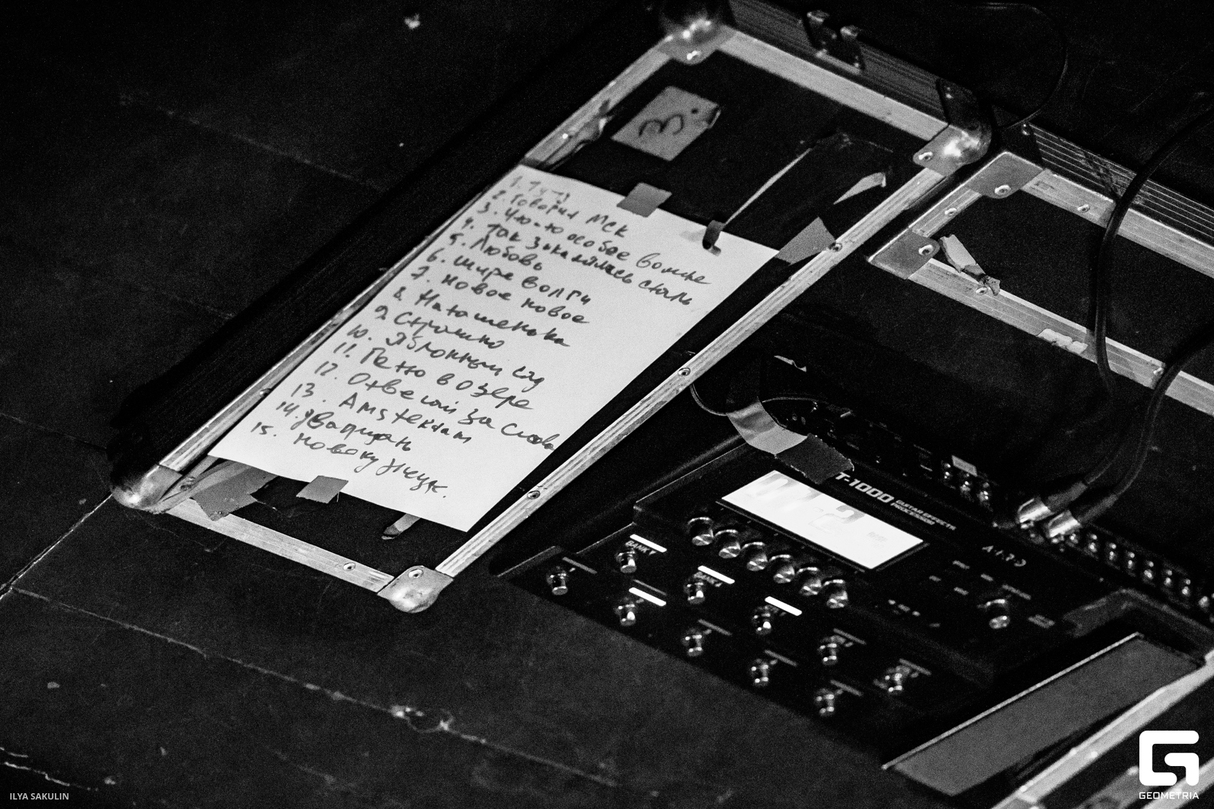 3.
1.
2. Говорит МСК
3. Что-то особое
4. Так закалялась сталь
5. Любовь
6. Шире Волги
7. Новое новое
8. Наташенька
9. Страшно
10. Яблонный сад
11. в озере
12. Отвечай за слова
13. Amsterdam
14. Двадцать
15. Новокузнецк.
T-1000 GUITAR EFFECTS
PROCESSOR
BANK
ILYA SAKULIN
G
GEOMETRIA